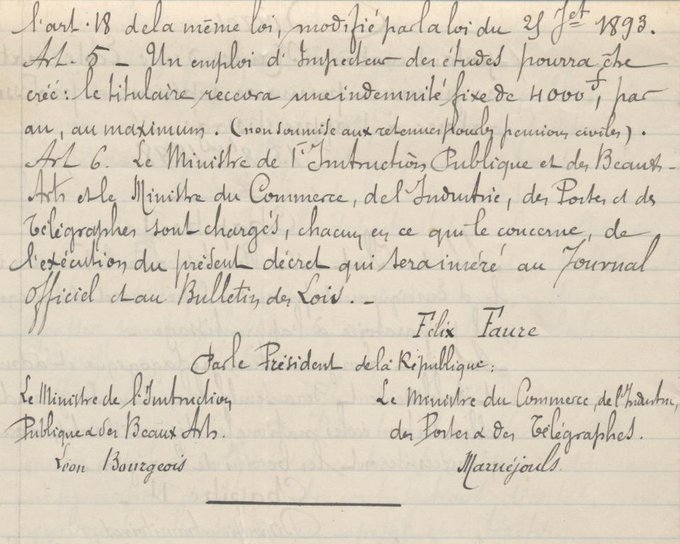 l'art. 18 de la même loi, modifié par la loi du 25 Jet 1893.
Art. 5 - Un emploi d'Inspecteur des études pourra être
créé : le titulaire recevra une indemnité fixe de 4000f, par
an, au maximum. (non soumise aux retenues pour les pensions civiles).
Art 6. Le Ministre de l'Instruction Publique et des Beaux-
Arts et le Ministre du Commerce, de l'Industrie, des Postes et des
Télégraphes sont chargés, chacun en ce qui le concerne, de
l'exécution du présent décret qui sera inséré au Journal
Officiel et au Bulletin des Lois. -
Félix Faure
Par le Président de la République :
Le Ministre de l'Instruction
Publique & des Beaux Arts.
Léon Bourgeois
Le Ministre du Commerce, de l'Industrie,
des Postes & des Télégraphes.
Maruéjouls